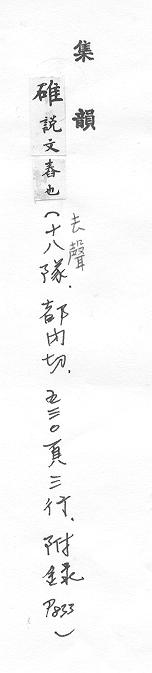 集韻
碓說文舂也(十八隊.都內切.五三〇頁三行.附錄P833)
去聲